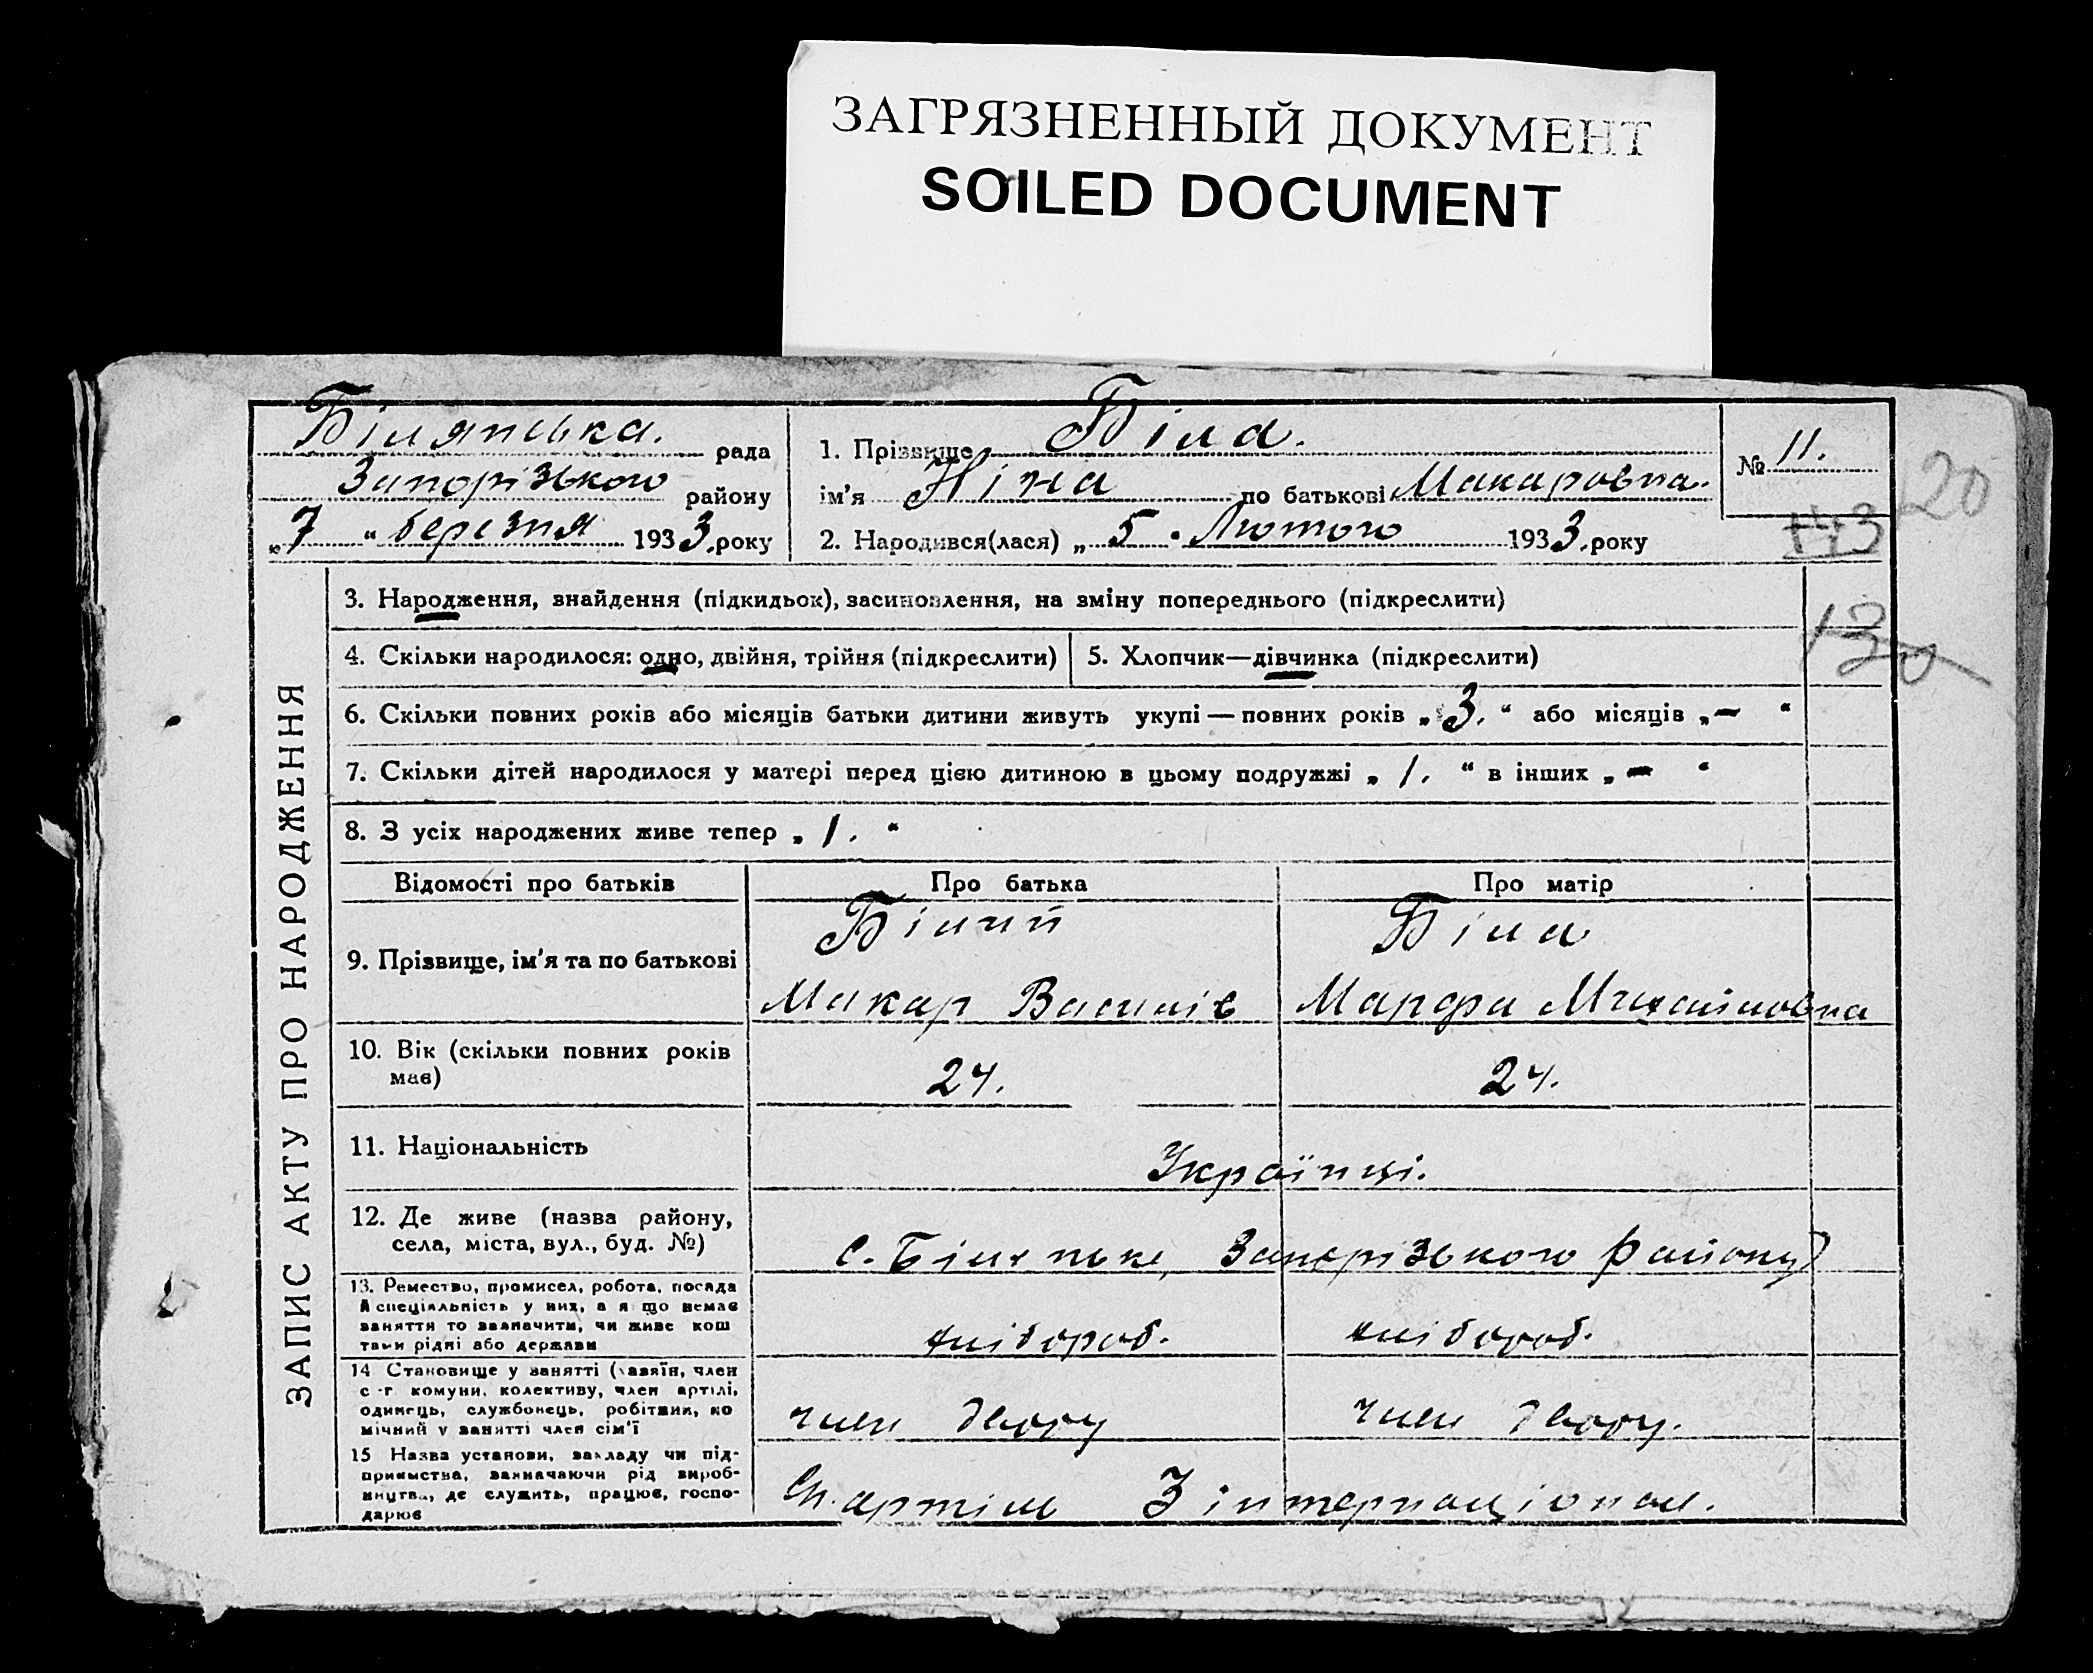 ЗАГРЯЗНЕННЫЙ ДОКУМЕНТ
SOILED DOCUMENT
Білянська. рада
Запорізького району
„7“ березня 1933. року
1. Прізвище Біла.
ім'я Ніна по батькові Макаровна.
2. Народився(лася) „5“ Лютого 1933. року
№ 11.
20
143
130
ЗАПИС АКТУ ПРО НАРОДЖЕННЯ
3. Народження, знайдення (підкидьок), засиновлення, на зміну попереднього (підкреслити)
4. Скільки народилося: одно, двійня, трійня (підкреслити) 5. Хлопчик—дівчинка (підкреслити)
6. Скільки повних років або місяців батьки дитини живуть укупі — повних років „3.“ або місяців „—“
7. Скільки дітей народилося у матері перед цією дитиною в цьому подружжі „1.“ в інших „—“
8. З усіх народжених живе тепер „1.“
Відомості про батьків Про батька Про матір
9. Прізвище, ім'я та по батькові
Білий
Макар Василів
Біла
Марфа Михайловна
10. Вік (скільки повних років
має)
24. 24.
11. Національність
Українці.
12. Де живе (назва району,
села, міста, вул., буд. №)
с. Біленьке, Запорізького району
13. Ремество, промисел, робота, посада
й спеціяльність у них, а якщо немає
заняття то зазначити, чи живе кош
тами рідні або держави
хлібороб. хлібороб.
14 Становище у занятті (хазяїн, член
с-г комуни, колективу, член артілі,
одинець, службонець, робітник, по
мічний у занятті член сім'ї
член двору член двору.
15 Назва установи, закладу чи під-
приємства, зазначаючи рід вироб-
ництва, де служить, працює, госпо-
дарює
артіль 3 інтернаціонал.